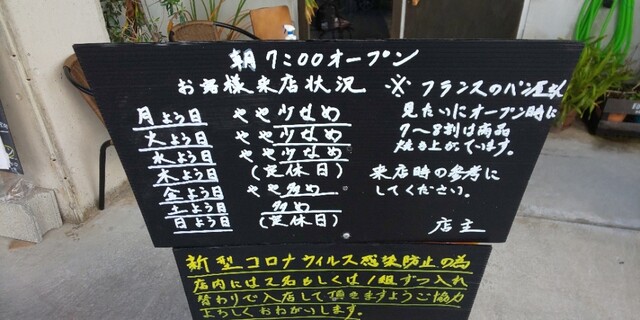 朝 7:00オープン
お客様来店状況
月よう日 やや少なめ
火よう日 やや少なめ
水よう日 やや少なめ
木よう日 (定休日)
金よう日 やや多め
土よう日 多め
日よう日 (定休日)
※ フランスのパン屋さん
見たいにオープン時に
7〜8割は商品
焼き上がっています。
来店時の参考に
してください。
店主
新型コロナウイルス感染防止の為
店内には2名もしくは1組ずつ入れ
替わりで入店して頂きますようご協力
よろしくおねがいします。